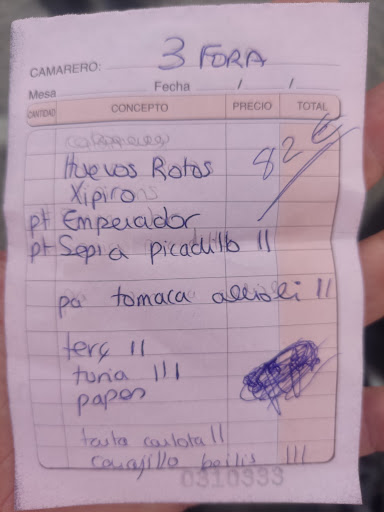 3 FORA
CAMARERO:
Mesa Fecha / /
CANTIDAD CONCEPTO PRECIO TOTAL
Huevos Rotos 82€
Xipirons
pt Emperador
pt Sepia picadillo II
pa tomaca allioli II
terç II
turia III
papas
tarta carlota II
carajillo beilis III
0310333